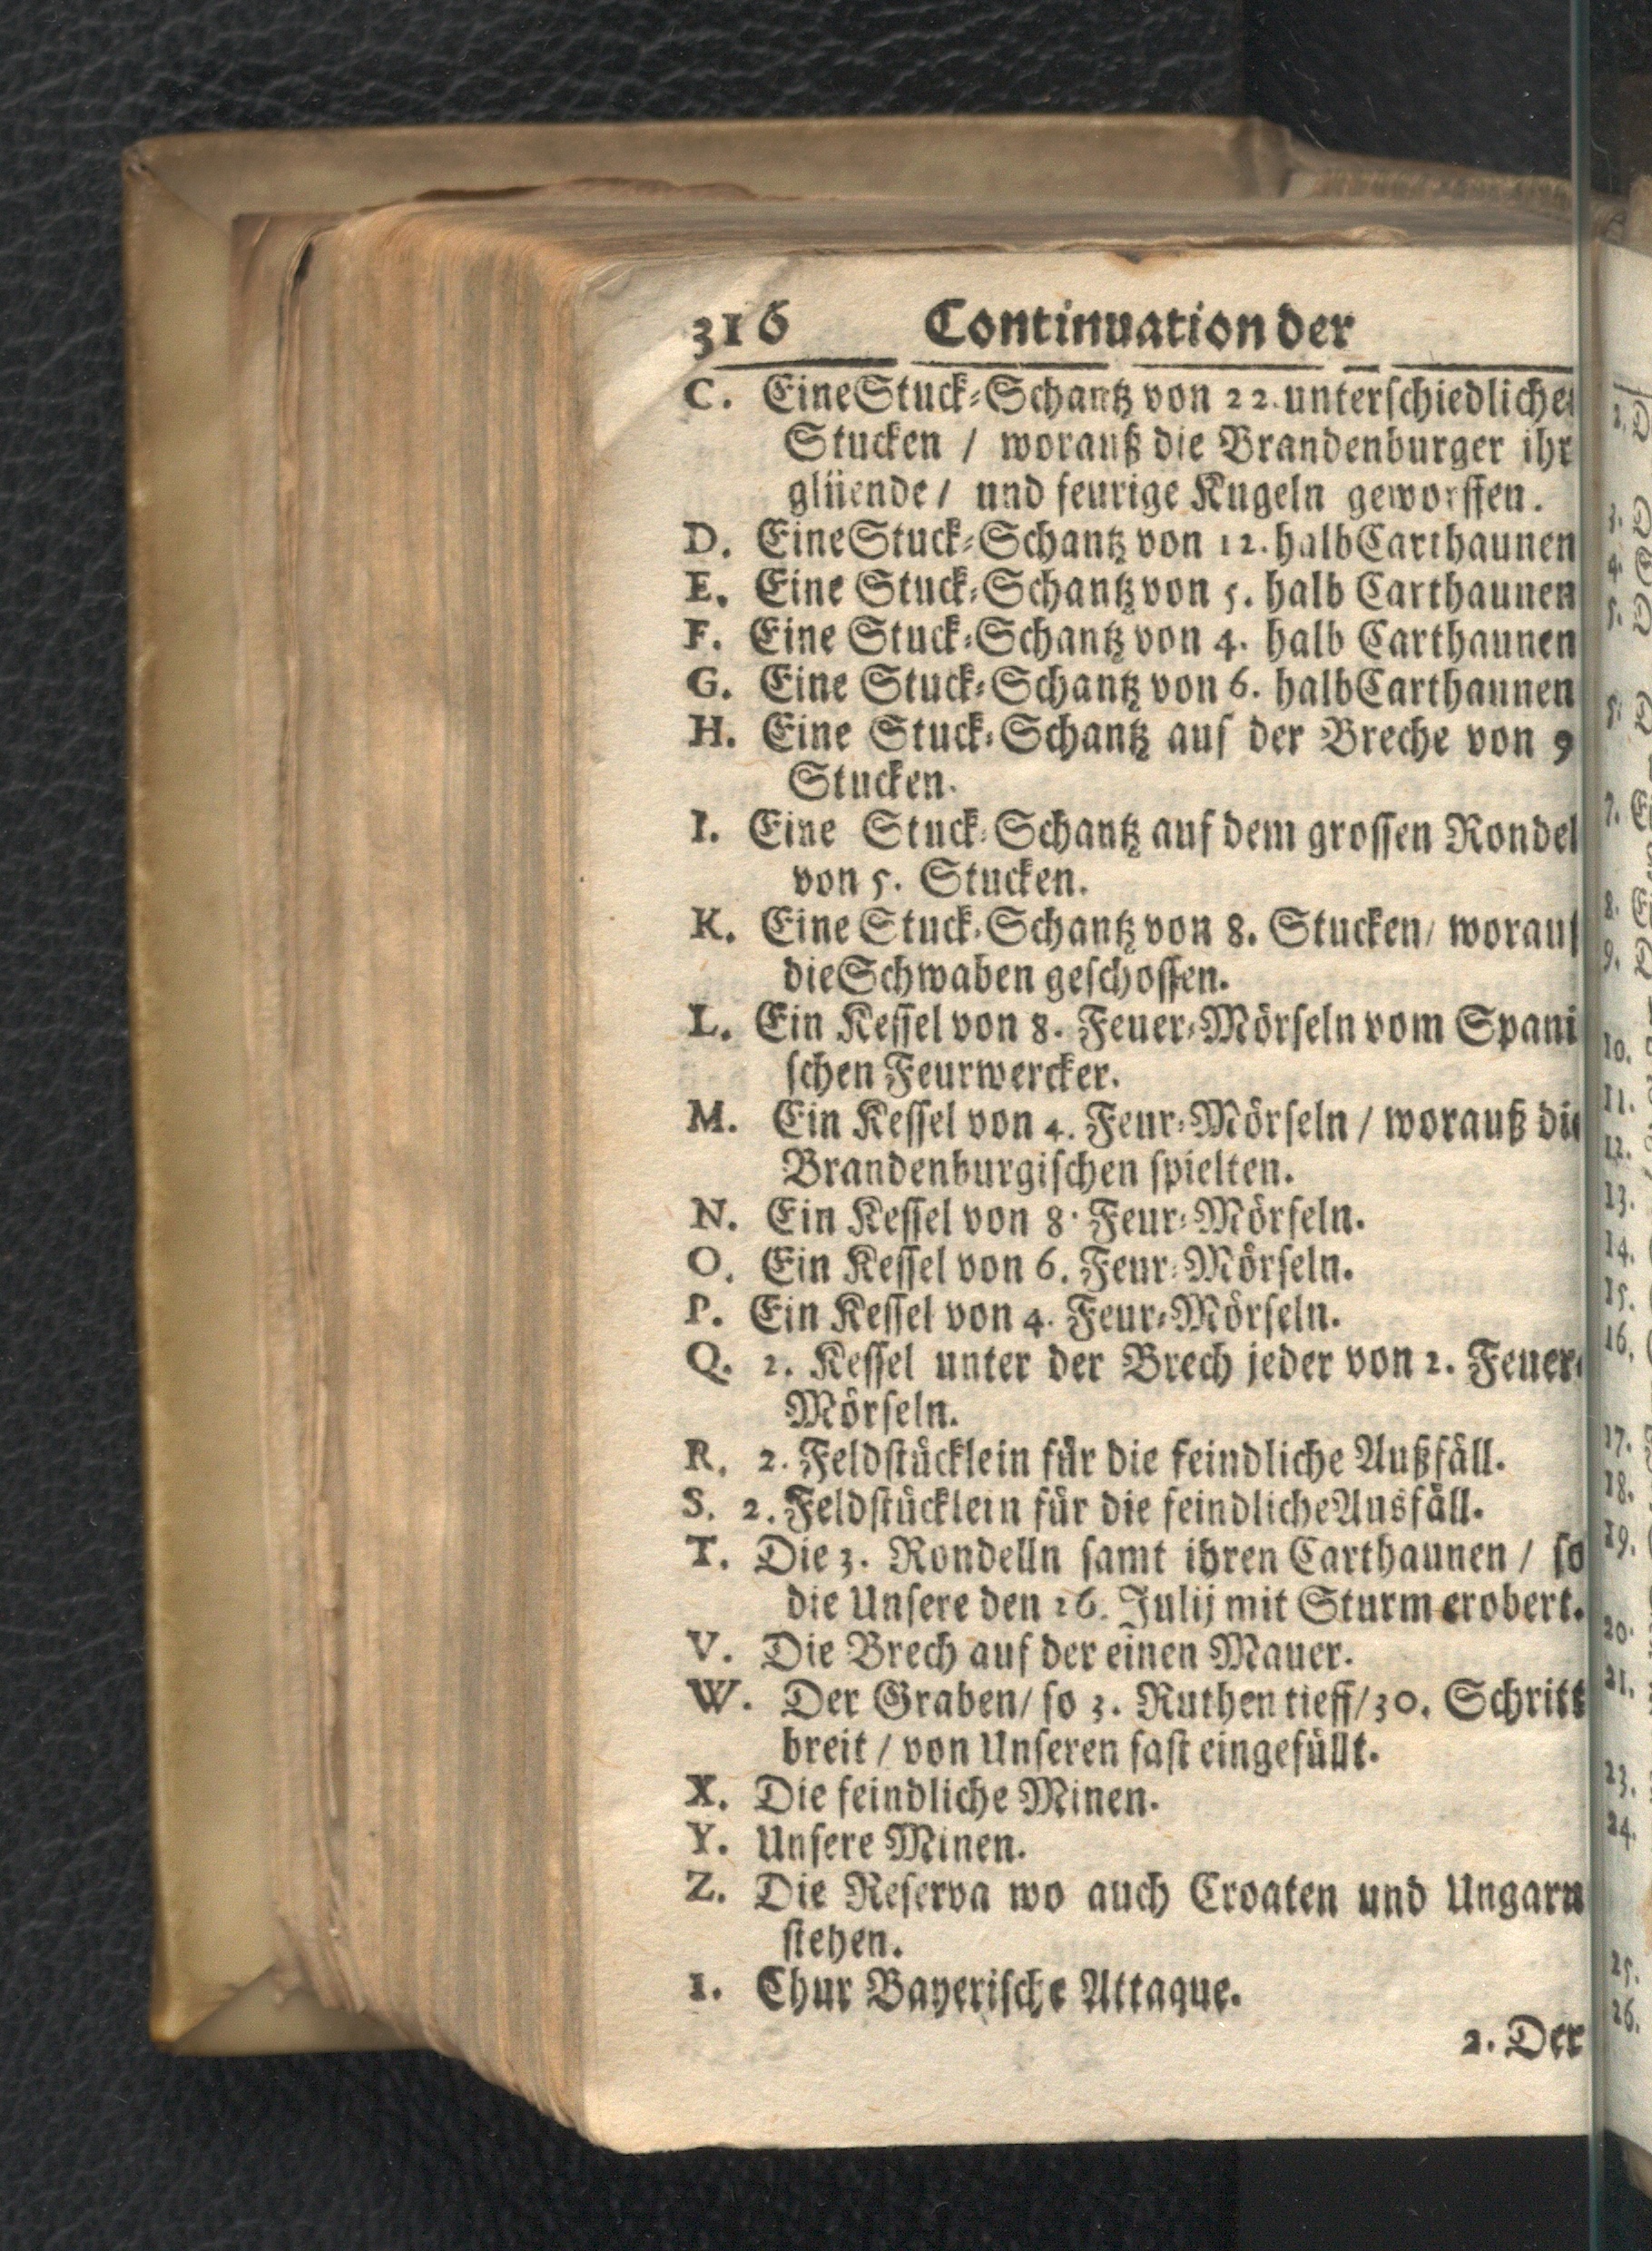 316 Continuation der
C. Eine Stuck-Schantz von 22. unterschiedliche
Stucken / worauß die Brandenburger ihr
glüende / und feurige Kugeln geworffen.
D. Eine Stuck-Schantz von 12. halb Carthaunen
E. Eine Stuck-Schantz von 5. halb Carthaunen
F. Eine Stuck-Schantz von 4. halb Carthaunen
G. Eine Stuck-Schantz von 6. halb Carthaunen
H. Eine Stuck-Schantz auf der Breche von 9
Stucken.
I. Eine Stuck-Schantz auf dem grossen Rondel
von 5. Stucken.
K. Eine Stuck-Schantz von 8. Stucken / worauß
die Schwaben geschossen.
L. Ein Kessel von 8. Feuer-Mörseln vom Spani
schen Feurwercker.
M. Ein Kessel von 4. Feur-Mörseln / worauß die
Brandenburgischen spielten.
N. Ein Kessel von 8. Feur-Mörseln.
O. Ein Kessel von 6. Feur-Mörseln.
P. Ein Kessel von 4. Feur-Mörseln.
Q. 2. Kessel unter der Brech jeder von 2. Feuer-
Mörseln.
R. 2. Feldstücklein für die feindliche Außfäll.
S. 2. Feldstücklein für die feindliche Ausfäll.
T. Die 3. Rondelln samt ihren Carthaunen / so
die Unsere den 26. Julij mit Sturm erobert.
V. Die Brech auf der einen Mauer.
W. Der Graben / so 3. Ruthen tieff / 30. Schritt
breit / von Unseren fast eingefüllt.
X. Die feindliche Minen.
Y. Unsere Minen.
Z. Die Reserva wo auch Croaten und Ungarn
stehen.
1. Chur Bayerische Attaque.
2. Der